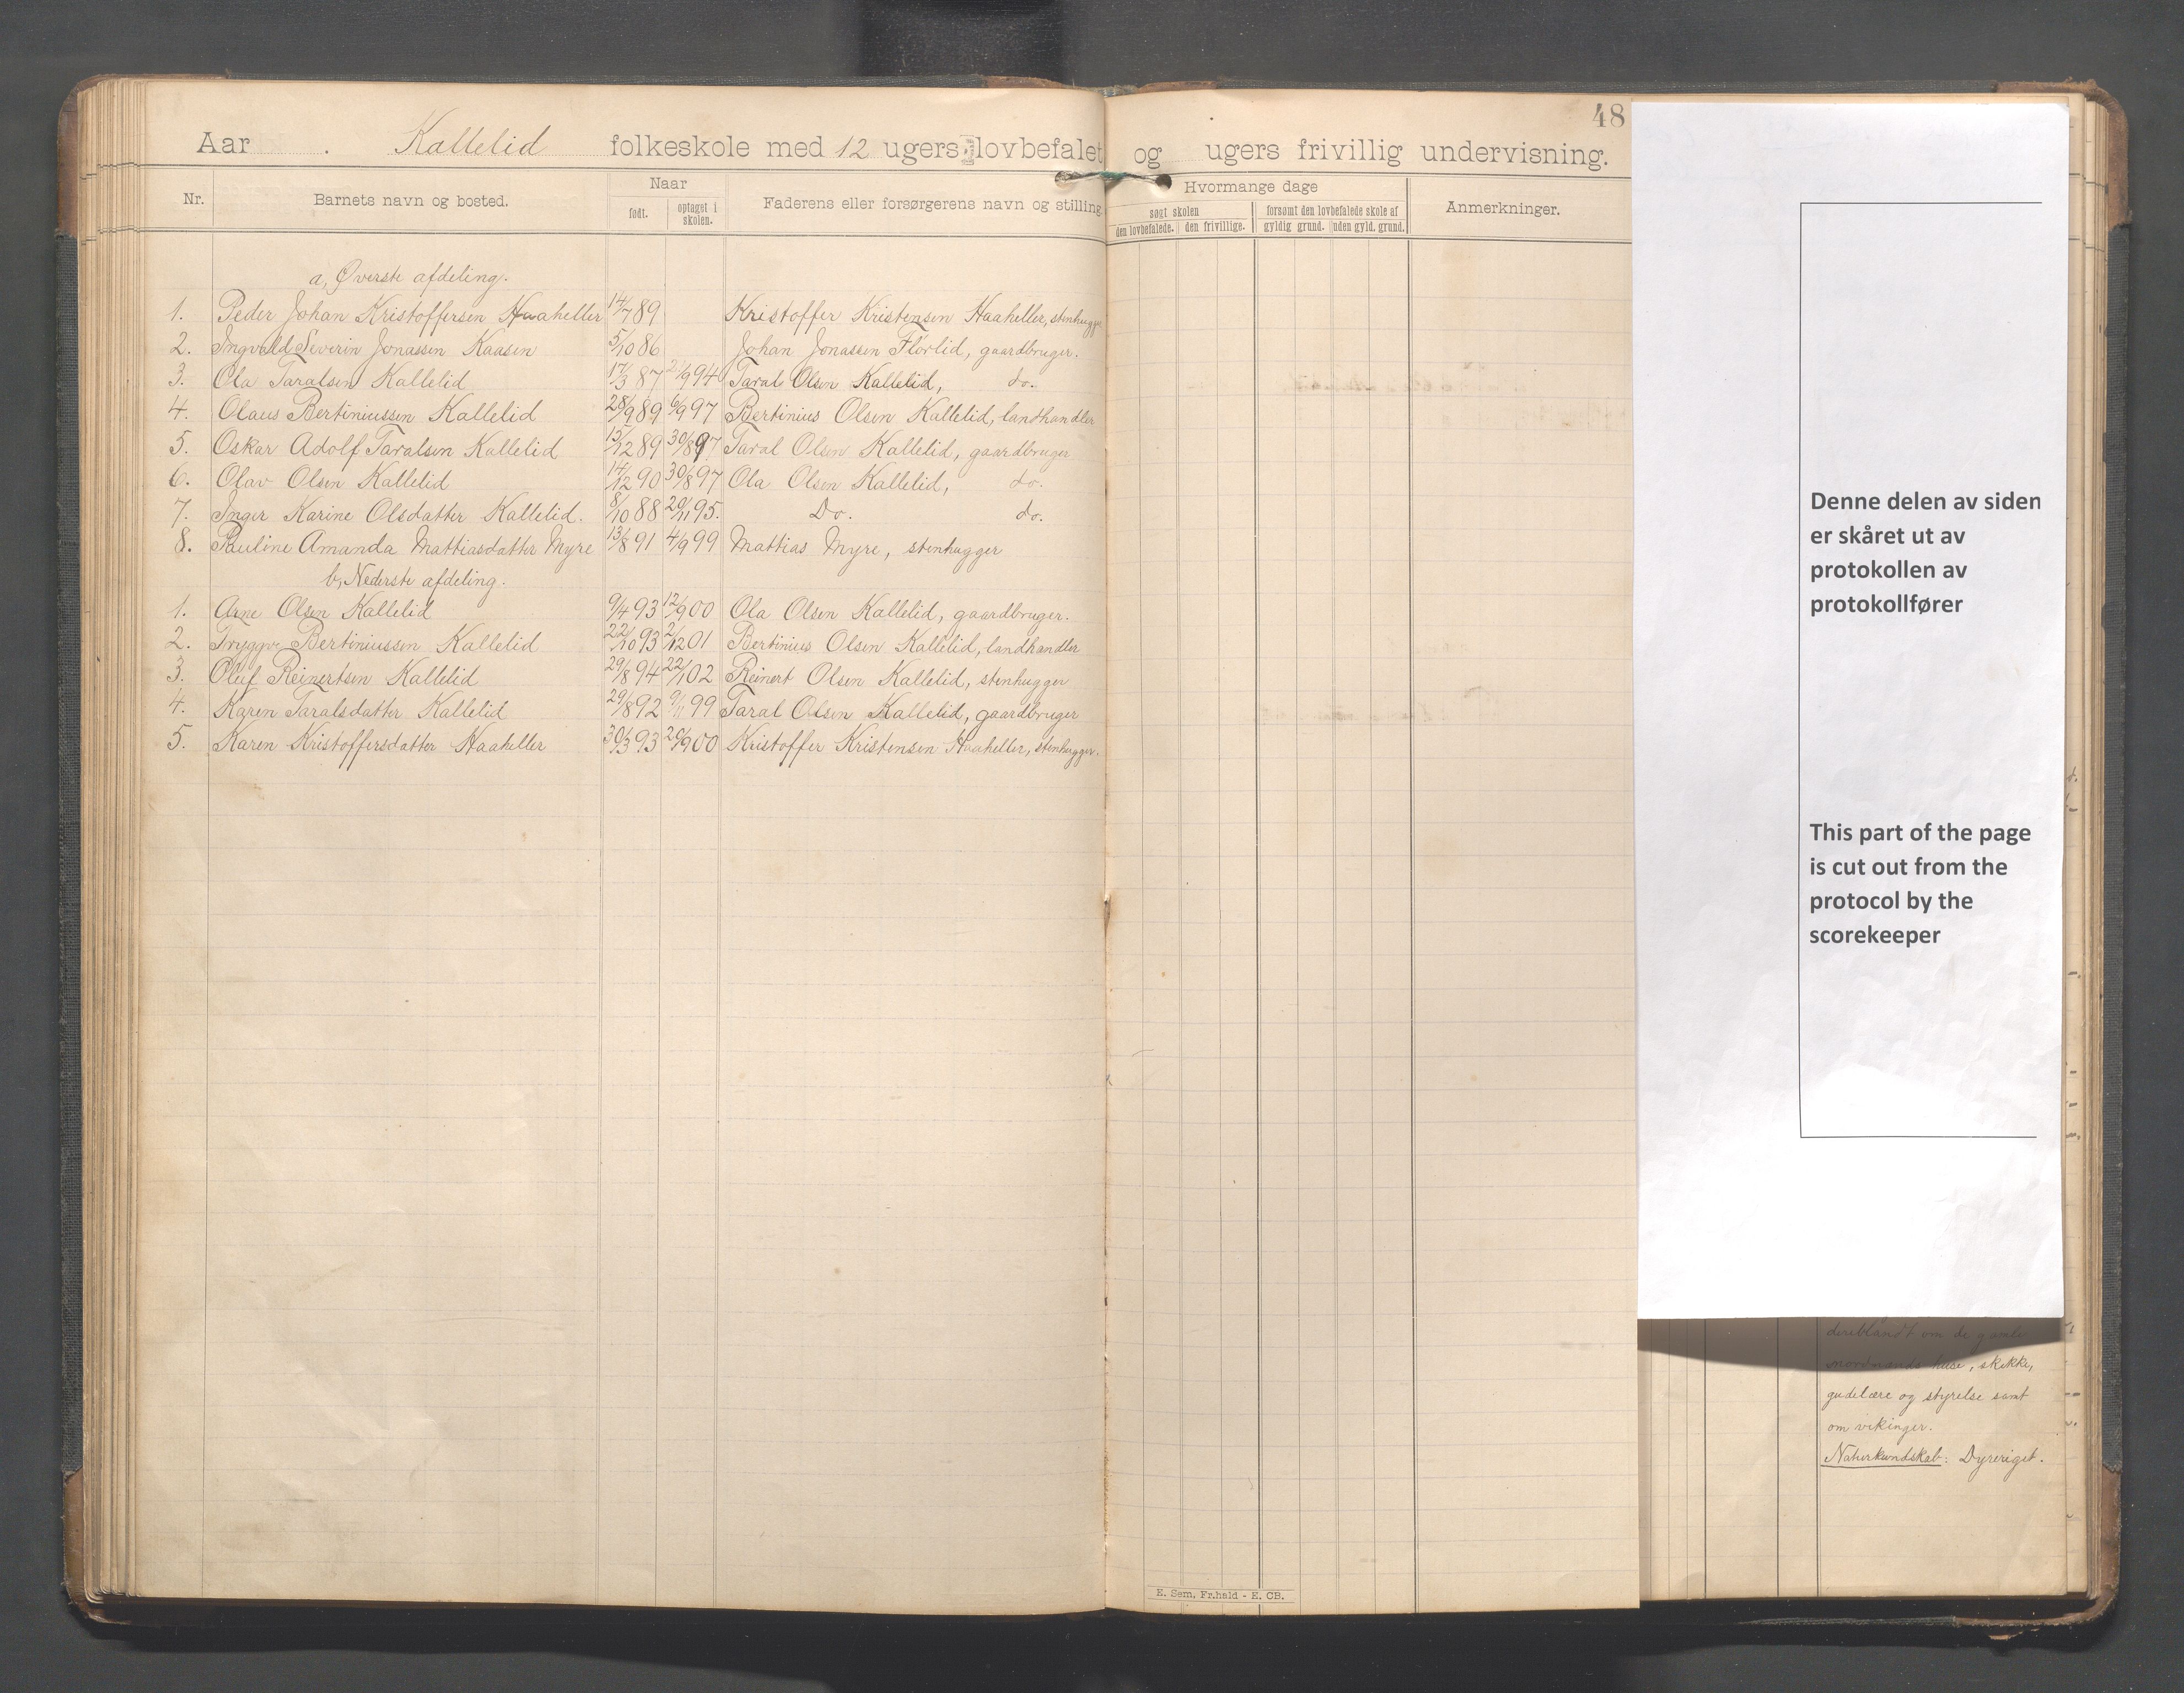 48
Aar . Kallelid folkeskole med 12 ugers lovbefalet og ugers frivillig undervisning.
Nr. Barnets navn og bosted. Naar født. optaget i skolen. Faderens eller forsørgerens navn og stilling. Hvormange dage søgt skolen den lovbefalede. den frivillige. forsømt den lovbefalede skole af gyldig grund. uden gyld. grund. Anmerkninger.
a, Øverste afdeling.
1. Peder Johan Kristoffersen Haaheller 14/7 89 Kristoffer Kristensen Haaheller, stenhugger
2. Ingvald Severin Jonassen Kaasen 5/10 86 Johan Jonassen Flørlid, gaardbruger.
3. Ola Taralsen Kallelid 17/3 87 /9 94 Taral Olsen Kallelid, do.
4. Olaus Bertiniussen Kallelid 28/9 89 6/9 97 Bertinius Olsen Kallelid, landhandler
5. Oskar Adolf Taralsen Kallelid 15/12 89 30/8 97 Taral Olsen Kallelid, gaardbruger
6. Olav Olsen Kallelid 14/12 90 30/8 97 Ola Olsen Kallelid, do.
7. Inger Karine Olsdatter Kallelid. 8/10 88 20/11 95. Do. do.
8. Pauline Amanda Mattiasdatter Myre 13/8 91 4/9 99 Mattias Myre, stenhugger
b, Nederste afdeling.
1. Arne Olsen Kallelid 9/4 93 12/9 00 Ola Olsen Kallelid, gaardbruger.
2. Tryggve Bertiniussen Kallelid 22/10 93 2/12 01 Bertinius Olsen Kallelid, landhandler
3. Oluf Reinertsen Kallelid 29/8 94 22/1 02 Reinert Olsen Kallelid, stenhugger
4. Karen Taralsdatter Kallelid 29/8 92 9/11 99 Taral Olsen Kallelid, gaardbruger
5. Karen Kristoffersdatter Haaheller 30/3 93 20/9 00 Kristoffer Kristensen Haaheller, stenhugger.
E. Sem, Fr.hald - E. CB.
Denne delen av siden
er skåret ut av
protokollen av
protokollfører
This part of the page
is cut out from the
protocol by the
scorekeeper
deriblandt om de gamle
nordmænds huse, skikke,
gudelære og styrelse samt
om vikinger.
Naturkundskab: Dyreriget.